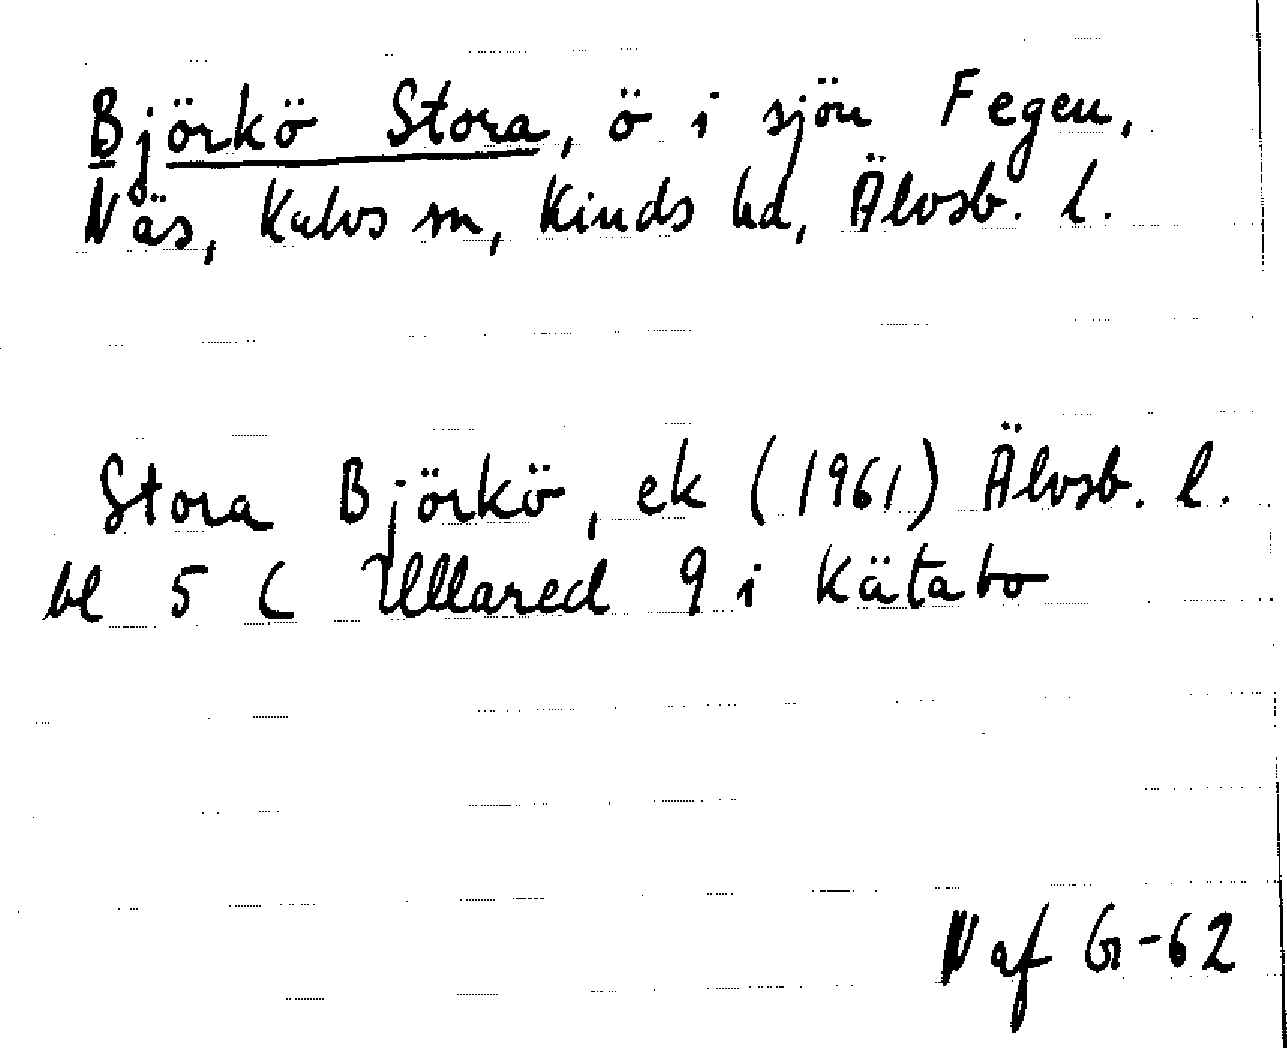 Björkö Stora, ö i sjön Fegen,
Näs, Kalvs sn, Kinds hd, Älvsb. l.
Stora Björkö, ek (1961) Älvsb. l.
bl 5 C Ullared 9 i Kätabo
N af G-62